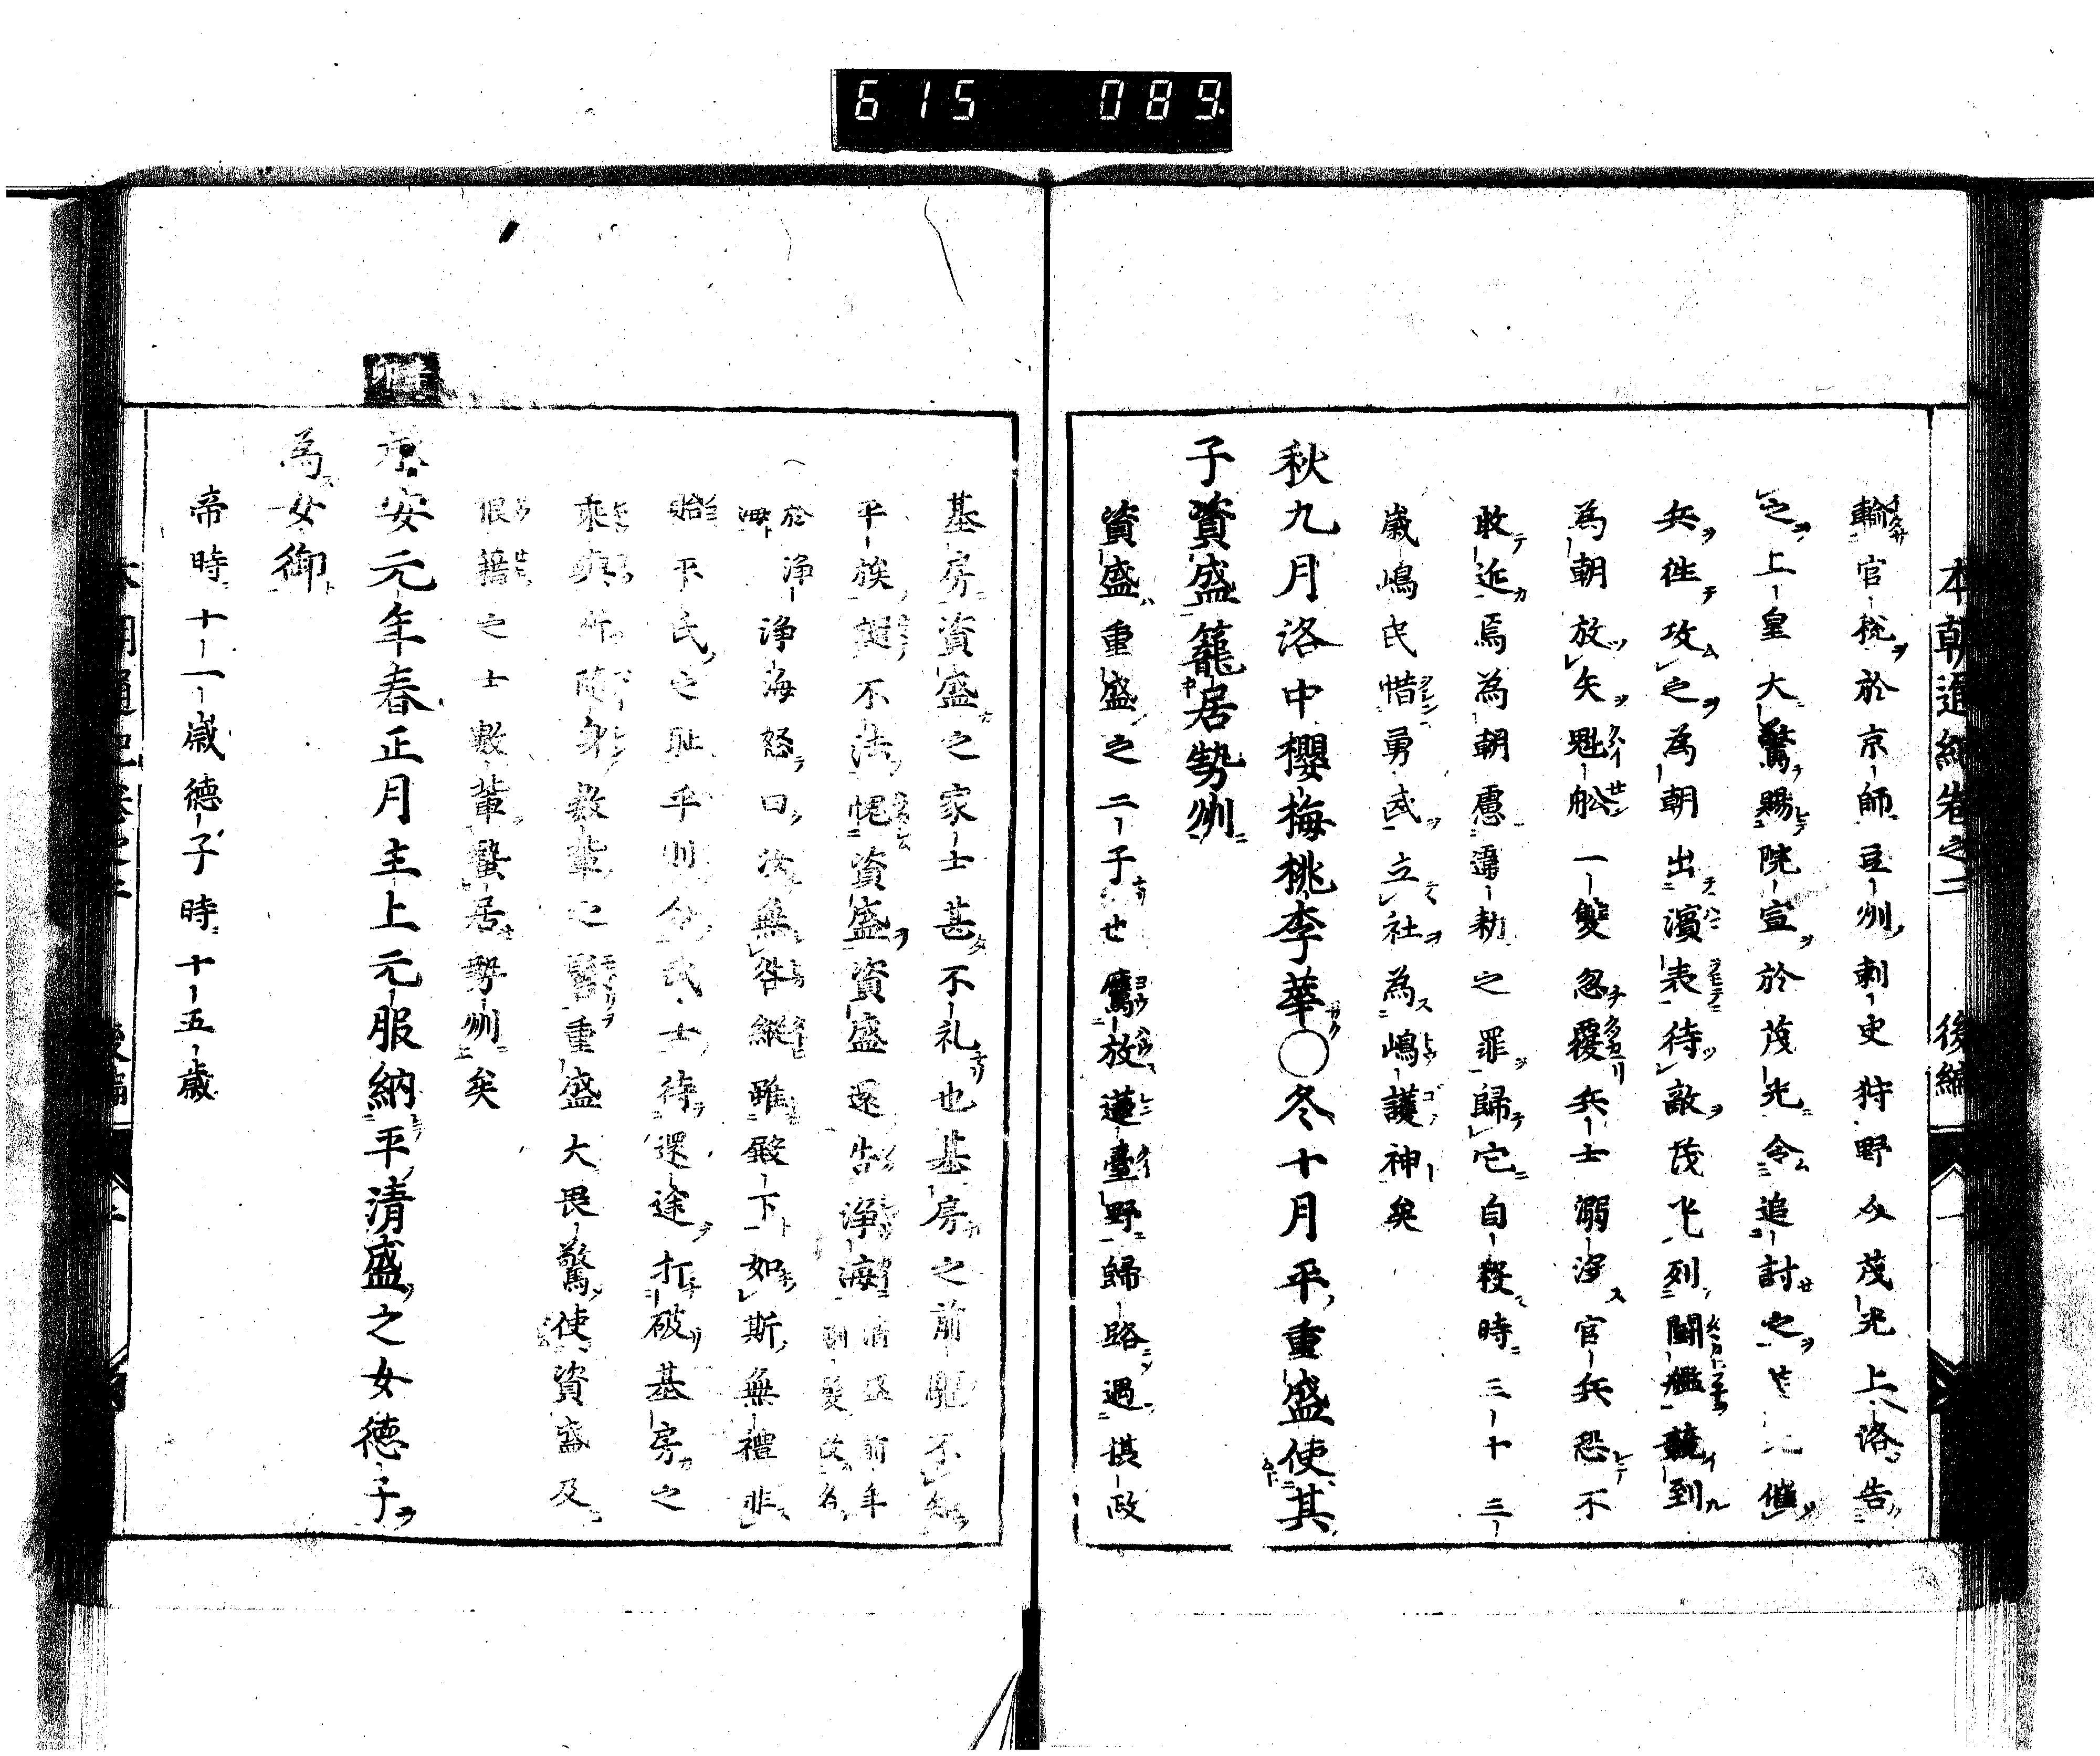 615 089
本朝通紀卷之二 後編
輸官税於京師豆州刺史狩野介茂光上洛告
之上皇大驚賜院宣於茂光令追討之茂光催
兵徃攻之為朝出濱表待敵茂光列闘艦競到
為朝放矢魁舩一雙忽覆兵士溺浮官兵恐不
敢近焉為朝慮違勅之罪歸宅自殺時三十三
歳嶋民惜勇武立社為嶋護神矣
秋九月洛中櫻梅桃李華〇冬十月平重盛使其
子資盛籠居勢州
資盛重盛之二子也鷹放蓮臺野歸路遇摂政
基房資盛之家士甚不礼也基房之前駈不知
平族 不法 資盛資盛還告淨海清盛前年剃髮改名
於浄海
浄海怒曰汝無咎縱雖殿下如斯無禮非
貽平氏之耻乎則令武士待還途打破基房之
乘輿斫隨身数輩之髻重盛大畏驚使資盛及
狼藉之士數輩蟄居勢州矣
承安元年春正月主上元服納平清盛之女徳子
為女御
帝時十一歳徳子時十五歳